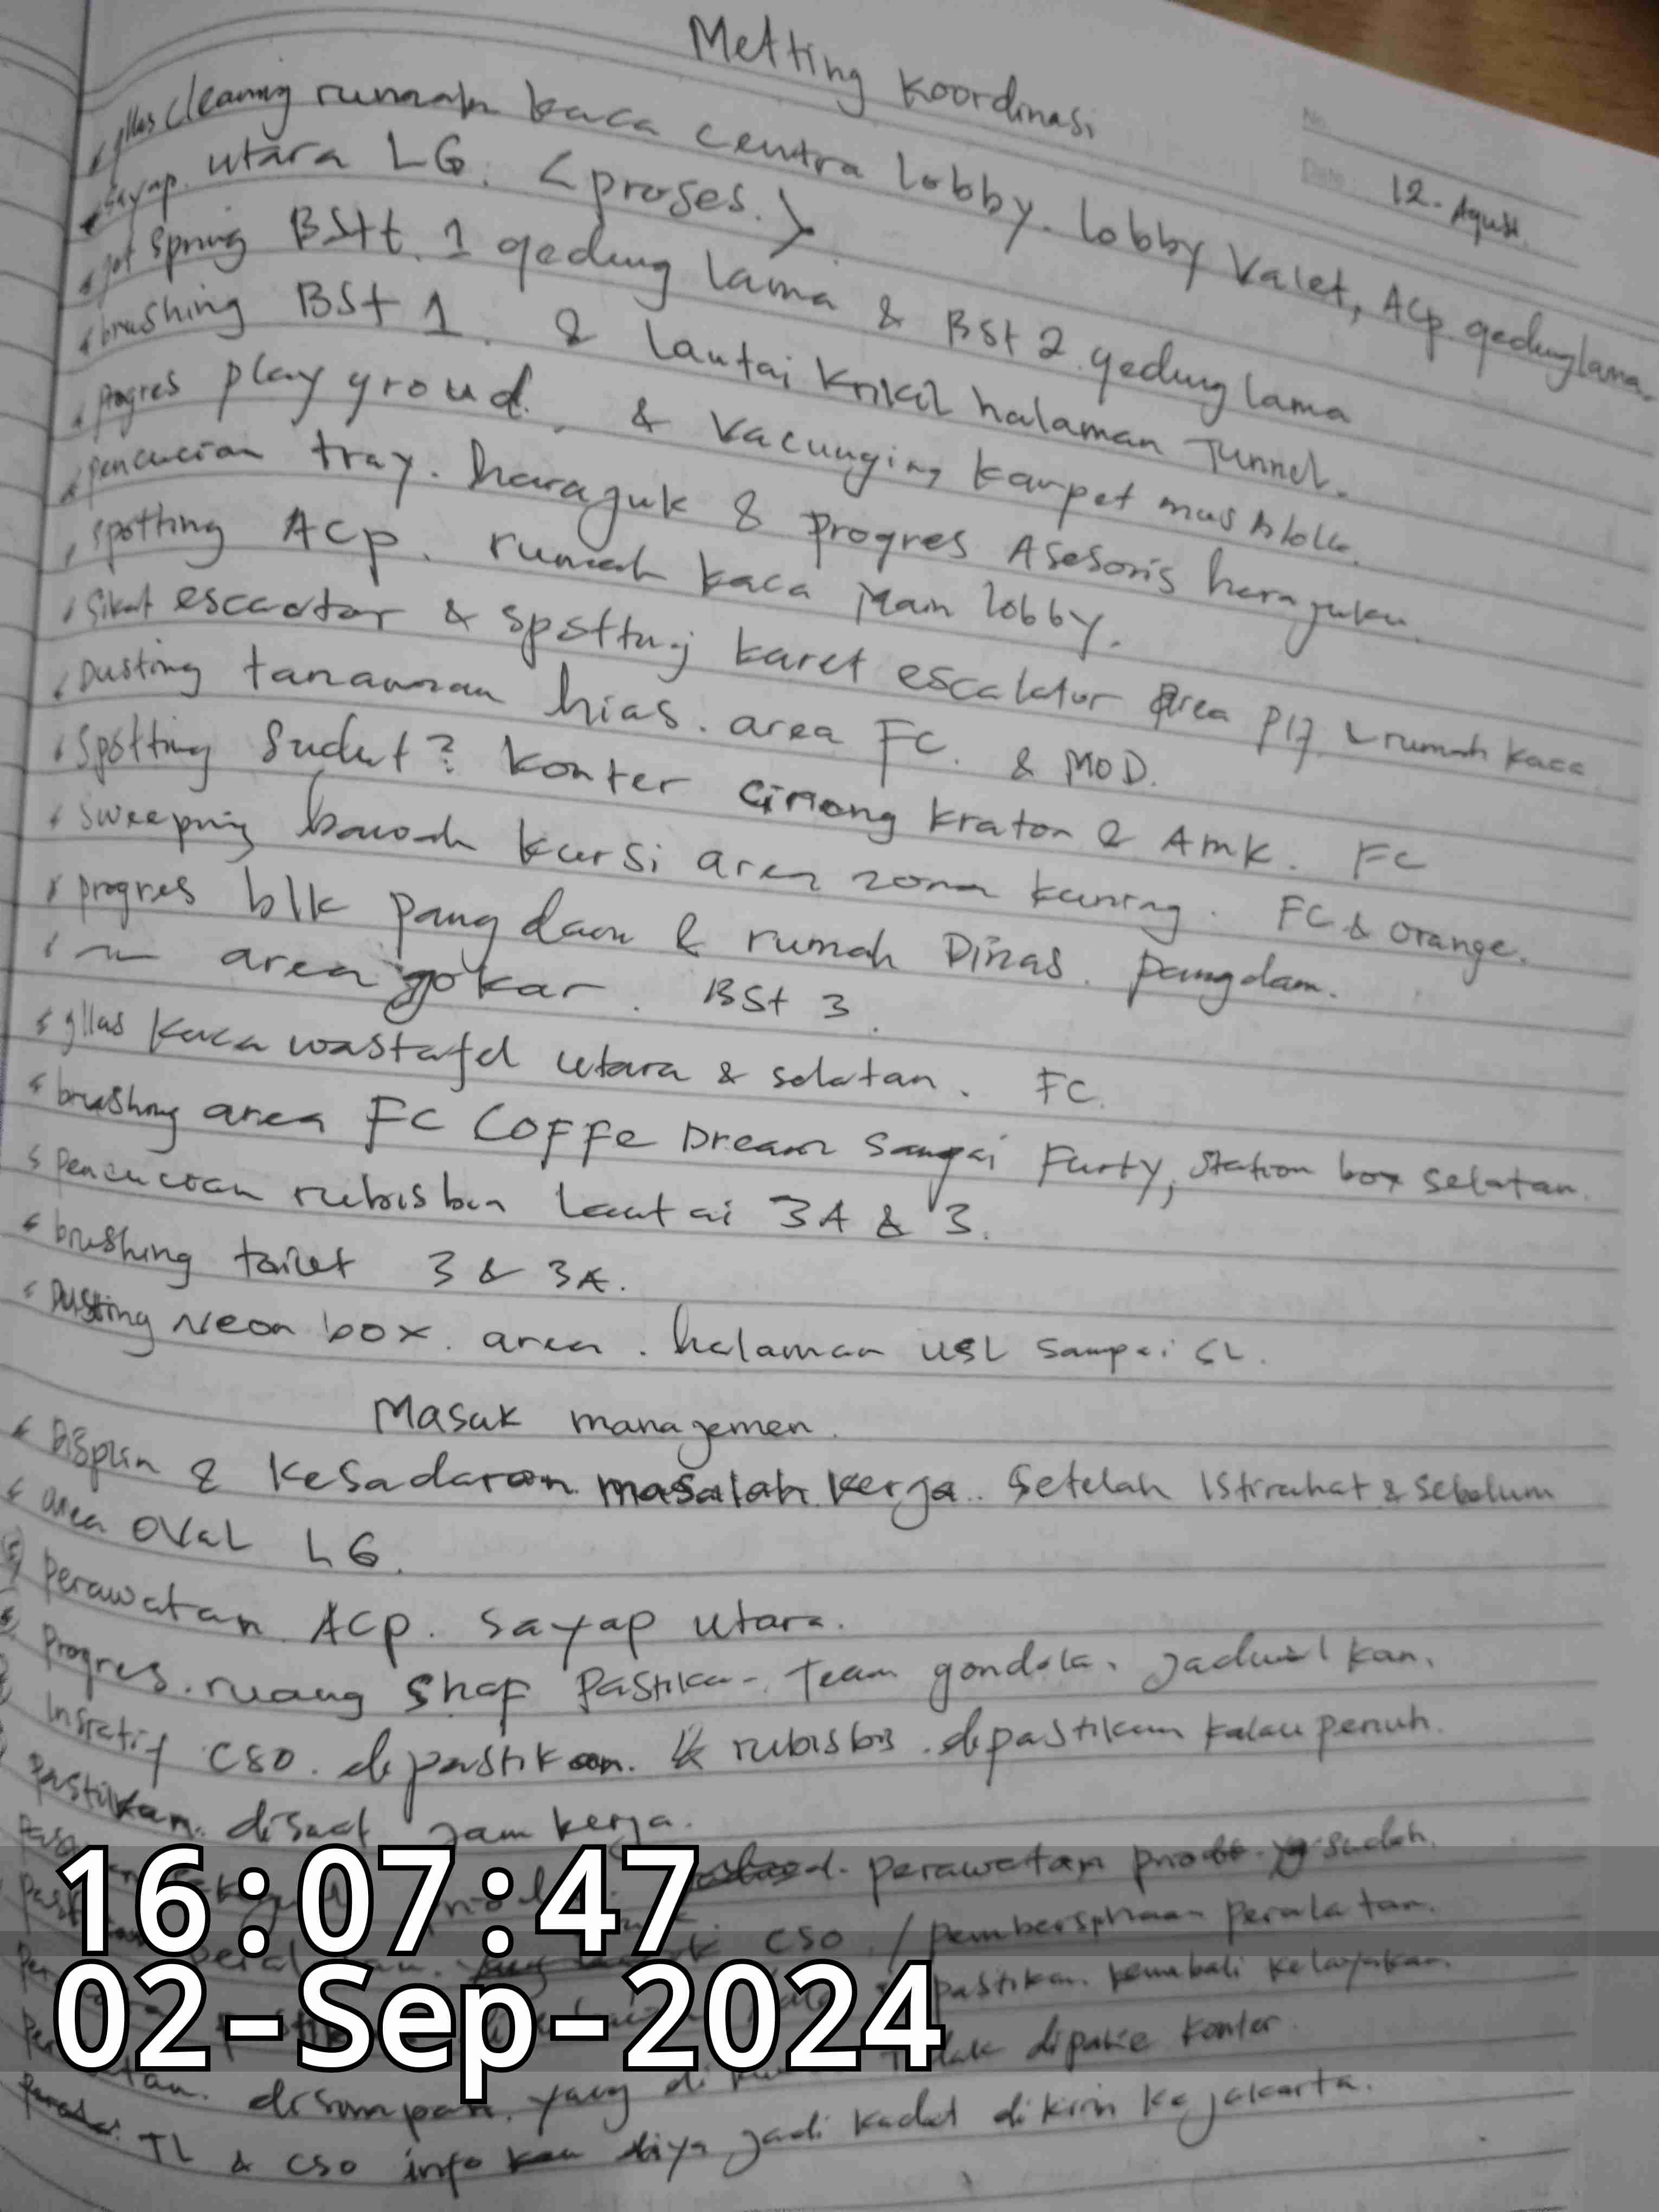 Metting Koordinasi
No.
Date
12. Agust.
gllas cleaning rumah kaca centra lobby. lobby Valet, ACp gedung lama.
sayap utara LG. <proses.>
jet spring BStt. 1 gedung lama & BSt 2 gedung lama
brushing BSt 1. & lantai krikil halaman Tunnel.
Progres play groud. & Vacuuging karpet musholla.
pencucian tray. harajuk & Progres Asesoris harajuku.
spotting ACp. rumah kaca Main lobby.
Sikat escaotor & spotting karet escalator area P17 & rumah kaca
Dusting tanaman hias. area FC. & MOD.
Spotting Sudut? konter Cimong kraton & AMK. FC
sweeping bawah kursi area zona kuning. FC & orange.
progres blk pangdam & rumah Dinas. pangdam.
area gokar. BSt 3.
gllas kaca wastafel utara & selatan. FC.
brushing area FC Coffe Dream sampai Furty, station box selatan.
pencucian rubisbin lantai 3A & 3.
brushing toilet 3 & 3A.
Dusting Neon box. area. halaman USL sampai SL.
Masuk managemen.
Displin & kesadaran masalah kerja.. setelah istirahat & sebelum
area OVaL LG.
perawatan ACp. sayap utara.
Progres. ruang shaf Pastikan. Team gondola. jadwal kan.
Insratif CSO. dipastikan. & rubisbis. dipastikan kalau penuh.
pastikan. disaat jam kerja.
perawatan yg sudah.
CSO / pembersphaan peralatan.
pastikan. kembali kelayakan.
disimpan. yang dipakie konter.
TL & CSO info kan jadi kadet dikirim ke jakarta.
16:07:47
02-Sep-2024